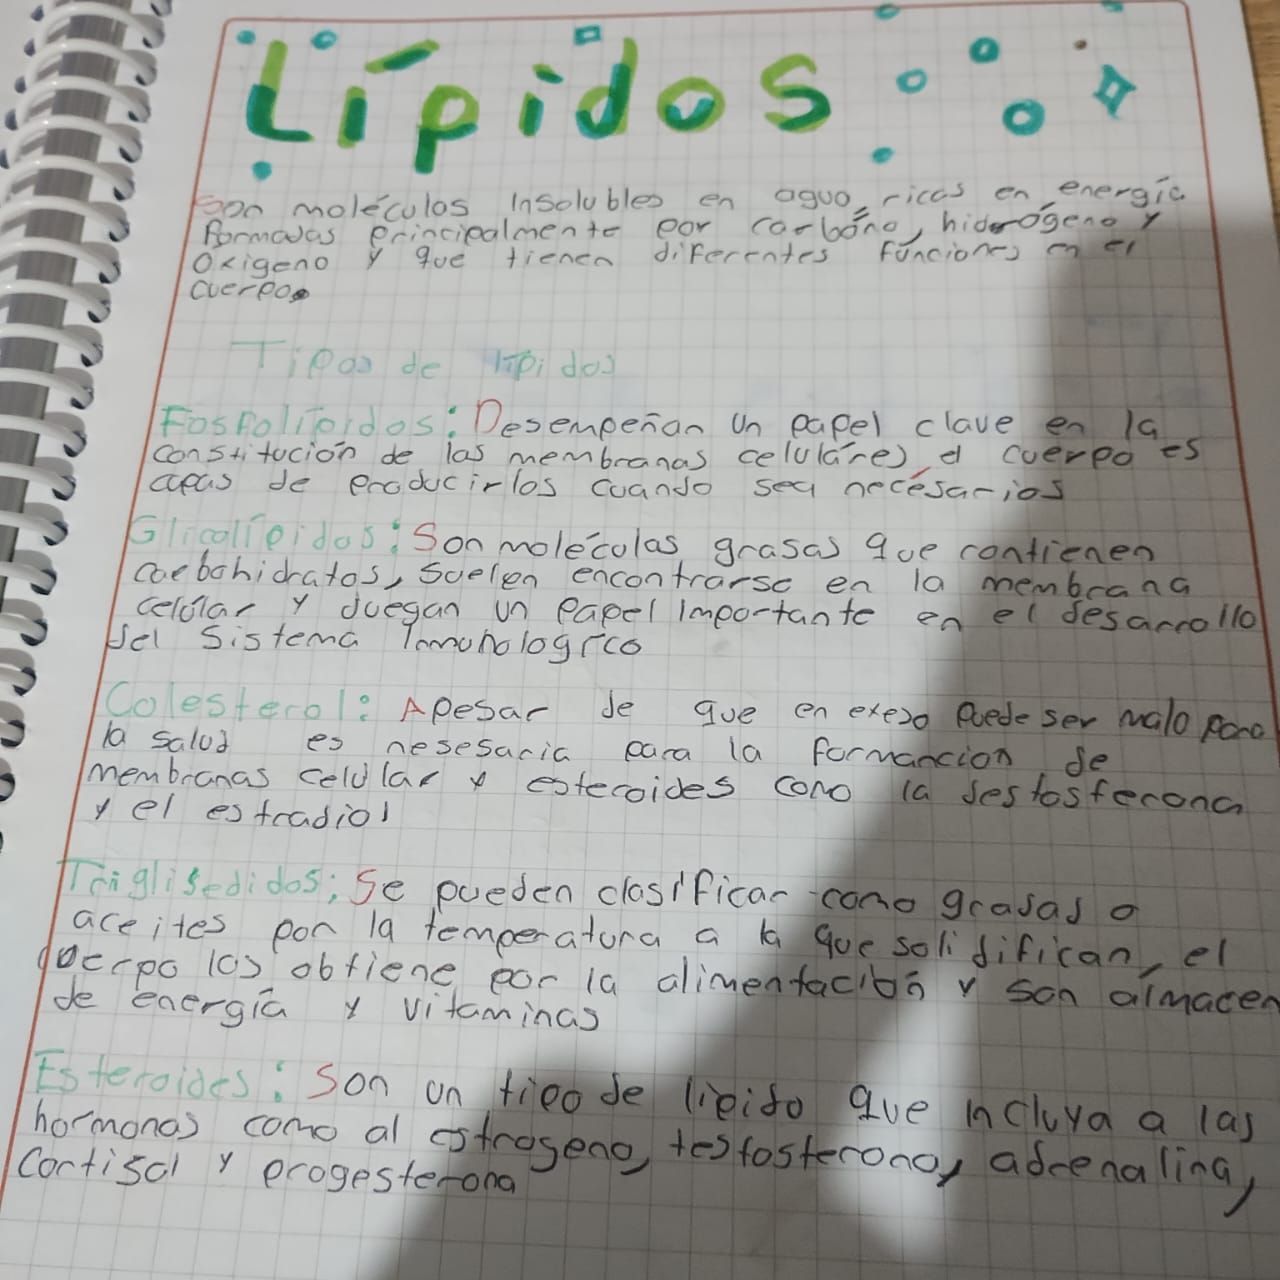 Lípidos
Son moléculas Insolubles en agua, ricas en energía
formadas principalmente por carbono, hidrógeno y
Oxigeno y que tienen diferentes funciones en el
cuerpo.
Tipos de lípidos
Fosfolípidos: Desempeñan un papel clave en la
constitución de las membranas celulares, el cuerpo es
capas de producirlos cuando sea necesarios
Glicolípidos: Son moléculas grasas que contienen
coebohidratos, suelen encontrarse en la membrana
celular y juegan un papel importante en el desarrollo
del sistema Inmunologico
Colesterol: Apesar de que en exeso puede ser malo para
la salud es nesesaria para la formancion de
membranas celular y esteroides como la testosterona
y el estradiol
Triglisedidos: Se pueden clasificar como grasas o
aceites por la temperatura a la que solidifican, el
cuerpo los obtiene por la alimentación y son almacen
de energía y vitaminas
Esteroides: Son un tipo de lipido que incluya a las
hormonas como al estrogeno, testosterona, adrenalina,
Cortisol y progesterona